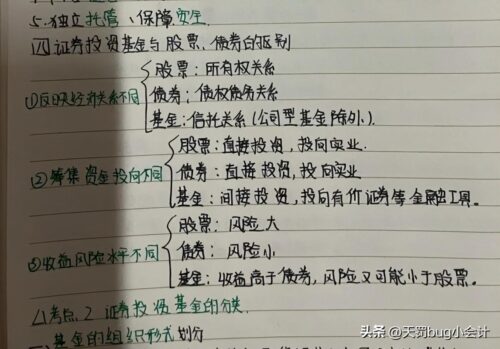 5.独立托管、保障安全.
四证券投资基金与股票、债券的区别
①反映经济关系不同
股票:所有权关系
债券:债权债务关系
基金:信托关系(公司型基金除外).
②筹集资金投向不同
股票:直接投资,投向实业.
债券:直接投资,投向实业.
基金:间接投资,投向有价证券等金融工具。
③收益风险水平不同
股票:风险大
债券:风险小
基金:收益高于债券,风险又可能小于股票。
考点2 证券投资基金的分类.
基金的组织形式划分
头条 @天罚bug小会计